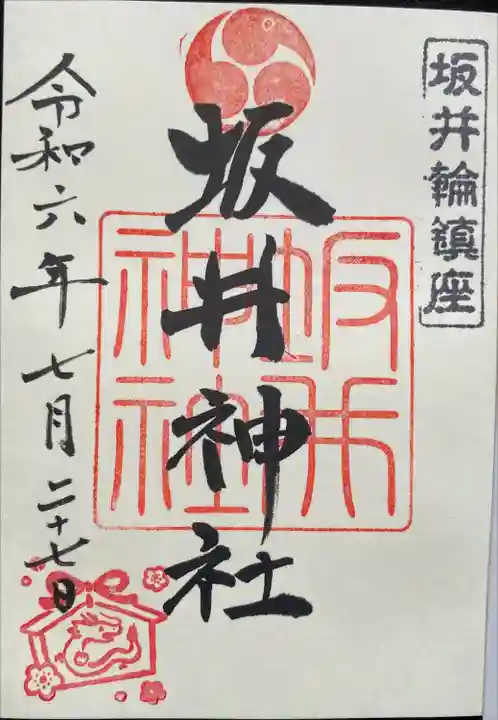 坂井輪鎮座
坂井神社
坂井神社
令和六年七月二十七日